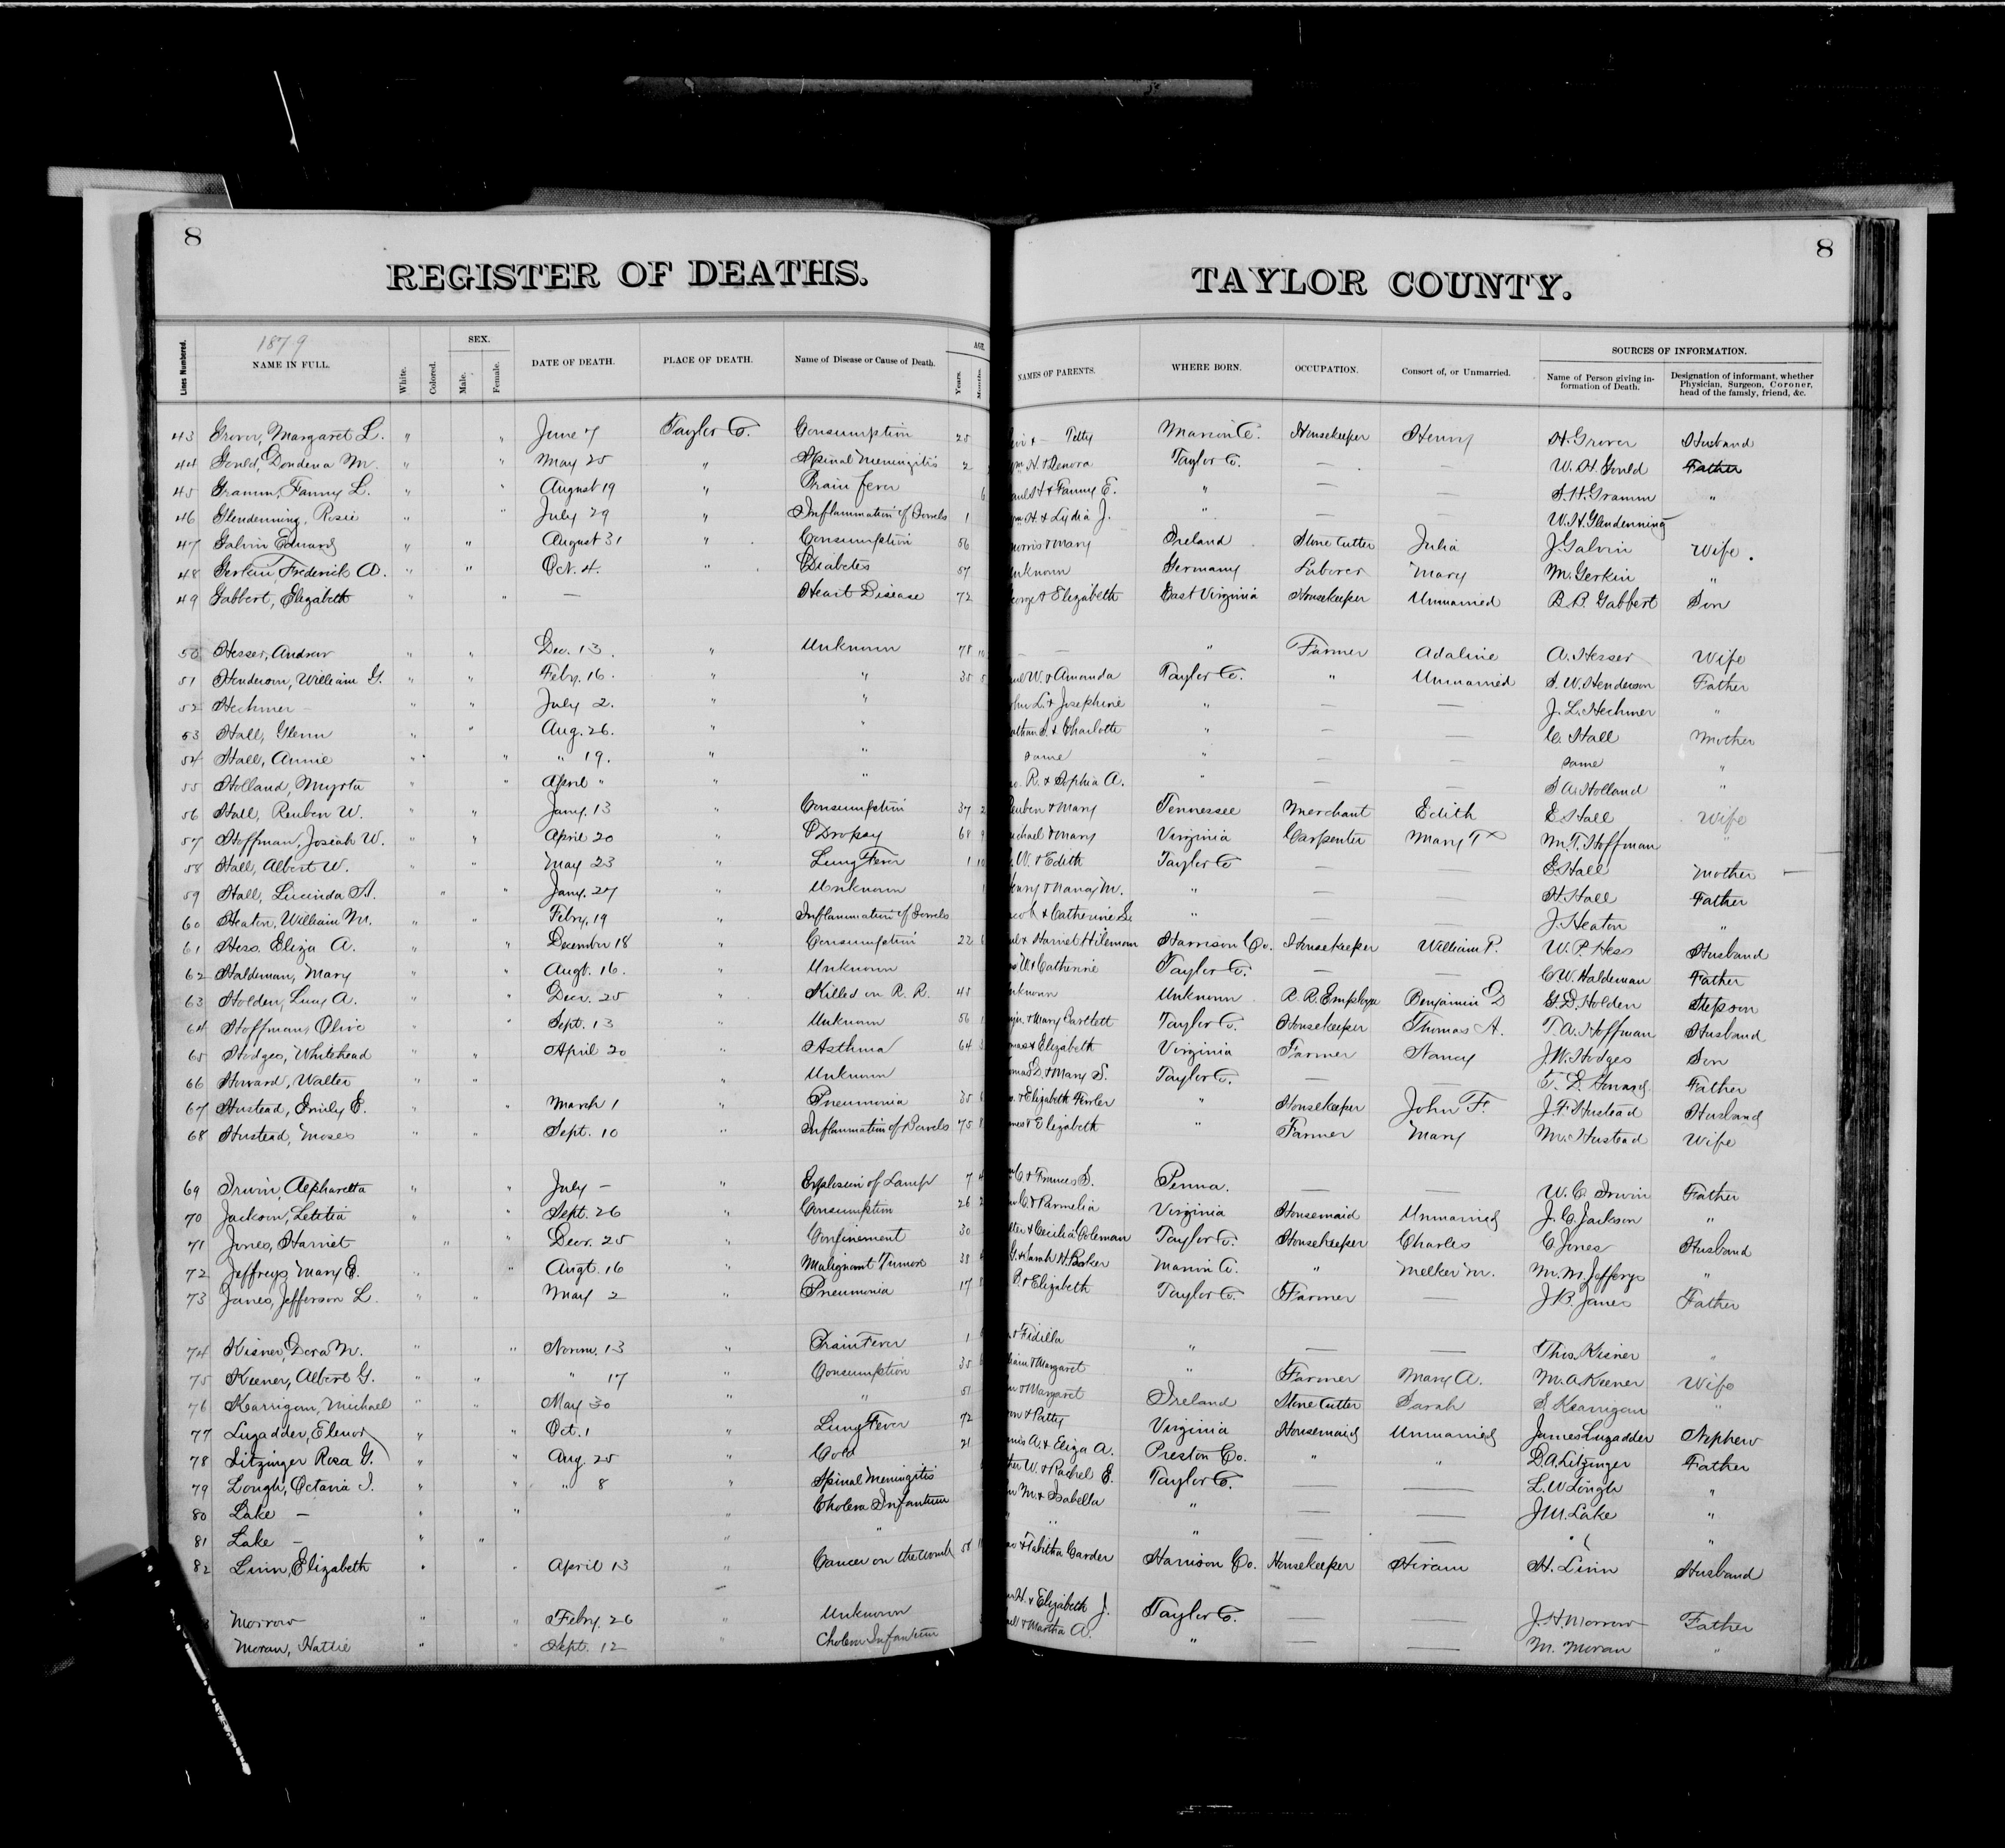 8
REGISTER OF DEATHS.
TAYLOR COUNTY.
8
Lines Numbered. 1879 NAME IN FULL. White. Colored. SEX. Male. Female. DATE OF DEATH. PLACE OF DEATH. Name of Disease or Cause of Death. AGE. Years. Months. NAMES OF PARENTS. WHERE BORN. OCCUPATION. Consort of, or Unmarried. SOURCES OF INFORMATION. Name of Person giving information of Death. Designation of informant, whether Physician, Surgeon, Coroner, head of the famsly, friend, &c.
43 Grover, Margaret L. " " June 7 Taylor Co. Consumption 25 Marion Co. Housekeeper Henry H. Grover Husband
44 Gould, Dondena M. " " May 25 " Spinal Meningitis 2 H. & Denora Taylor Co. — — W. H. Gould Father
45 Gramm, Fanny L. " " August 19 " Brain fever 6 & Fanny E. " — — S. H. Gramm "
46 Glendenning, Rosie " " July 29 " Inflammation of Bowels 1 H. & Lydia J. " — — W. H. Glendenning
47 Galvin Edward " " August 31 " Consumption 56 orris & Mary Ireland Stone Cutter Julia J. Galvin Wife
48 Gerkin, Frederick A. " " Oct. 4. " Diabetes 57 nknown Germany Laborer Mary M. Gerkin "
49 Gabbert, Elizabeth " " — Heart Disease 72 eorge & Elizabeth East Virginia Housekeeper Unmarried B. B. Gabbert Son
50 Hesser, Andrew " " Dec. 13. " Unknown 78 10 — — " Farmer Adaline A. Hesser Wife
51 Henderson, William G. " " Feby. 16. " " 35 5 W. & Amanda Taylor Co. " Unmarried S. W. Henderson Father
52 Hechmer — " " July 2. " " ohn L. & Josephine " — — J. L. Hechmer "
53 Hall, Glenn " " Aug. 26. " " athan S. & Charlotte " — — C. Hall Mother
54 Hall, Annie " " " 19. " " same " — — same "
55 Holland, Myrta " " April " " " R. & Sophia A. " — — S A. Holland "
56 Hall, Reuben W. " " Jany. 13 " Consumption 37 2 euben & Mary Tennessee Merchant Edith E. Hall Wife
57 Hoffman, Josiah W. " " April 20 " Dropsy 68 9 ichael & Mary Virginia Carpenter Mary T M. T. Hoffman "
58 Hall, Albert W. " " May 23 " Lung Fever 1 10 W. & Edith Taylor Co — E. Hall Mother
59 Hall, Lucinda A. " " Jany. 27 " Unknown 1 enry & Nancy M. " — H. Hall Father
60 Heaton, William M. " " Feby. 19 " Inflammation of Bowels acob & Catherine " — — J. Heaton "
61 Hess. Eliza A. " " December 18 " Consumption 22 6 & Harriet Hileman Harrison Co. Housekeeper William P. W. P. Hess Husband
62 Haldeman, Mary " " Augt. 16. " Unknown W & Catherine Taylor Co. — — C. W. Haldeman Father
63 Holden, Lucy A. " " Decr. 25 " Killed on R. R. 45 nknown Unknown R. R. Employe Benjamin D G. D. Holden Stepson
64 Hoffman, Olive " " Sept. 13 " Unknown 56 1 & Mary Bartlett Taylor Co. Housekeeper Thomas A. T. A. Hoffman Husband
65 Hodges, Whitehead " " April 20 " Asthma 64 & Elizabeth Virginia Farmer Nancy J. W. Hodges Son
66 Howard, Walter " " " Unknown D. & Mary S. Taylor Co. — — T. D. Howard Father
67 Hustead, Emily E. " " March 1 " Pneumonia 35 & Elizabeth Fowler " Housekeeper John F. J. F. Hustead Husband
68 Hustead, Moses " " Sept. 10 " Inflammation of Bowels 75 8 ames & Elizabeth " Farmer Mary M. Hustead Wife
69 Irwin, Alpharetta " " July — " Explosion of Lamp 7 4 C & Frances S. Penna. — — W. C. Irwin Father
70 Jackson, Letitia " " Sept. 26 " Consumption 26 2 C. & Parmelia Virginia Housemaid Unmarried J. C. Jackson "
71 Jones, Harriet " " Decr. 25 " Confinement 30 & Cecilia Coleman Taylor Co. Housekeeper Charles C. Jones Husband
72 Jeffreys Mary E. " " Augt. 16 " Malignant Tumor 38 G. & Sarah H. Marion Co. " Melker M. M. M. Jefferys "
73 Janes, Jefferson L. " " May 2 " Pneumonia 17 & Elizabeth Taylor Co. Farmer — J. B. Janes Father
74 Kisner, Dora M. " " Novm. 13 " Brain Fever 1 & Fidilla " — — Thos. Kisner "
75 Keener, Albert G. " " " 17 " Consumption 35 & Margaret " Farmer Mary A. M. A. Keener Wife
76 Karrigan, Michael " " May 30 " " 51 & Margaret Ireland Stone Cutter Sarah S. Karrigan "
77 Luzadder, Elenor " " Oct. 1 " Lung Fever 72 & Patty Virginia Housemaid Unmarried James Luzadder Nephew
78 Litzinger Rosa G. " " Aug. 25 " Cold 21 A. & Eliza A. Preston Co. " " D. A. Litzinger Father
79 Lough, Octavia I. " " " 8 " Spinal Meningitis W. & Rachel E. Taylor Co. — — L. W. Lough "
80 Lake — " " " Cholera Infantum M. & Isabella " — — J M. Lake "
81 Lake — " " " " " " " — — " "
82 Linn, Elizabeth " " April 13 " Cancer on the womb 58 & Tabitha Carder Harrison Co. Housekeeper Hiram H. Linn Husband
3 Morrow " " Feby. 26 " Unknown H. & Elizabeth J. Taylor Co. — — J. H. Morrow Father
Moran, Hattie " " Sept. 12 " Cholera Infantum & Martha A. " — — M. Moran "